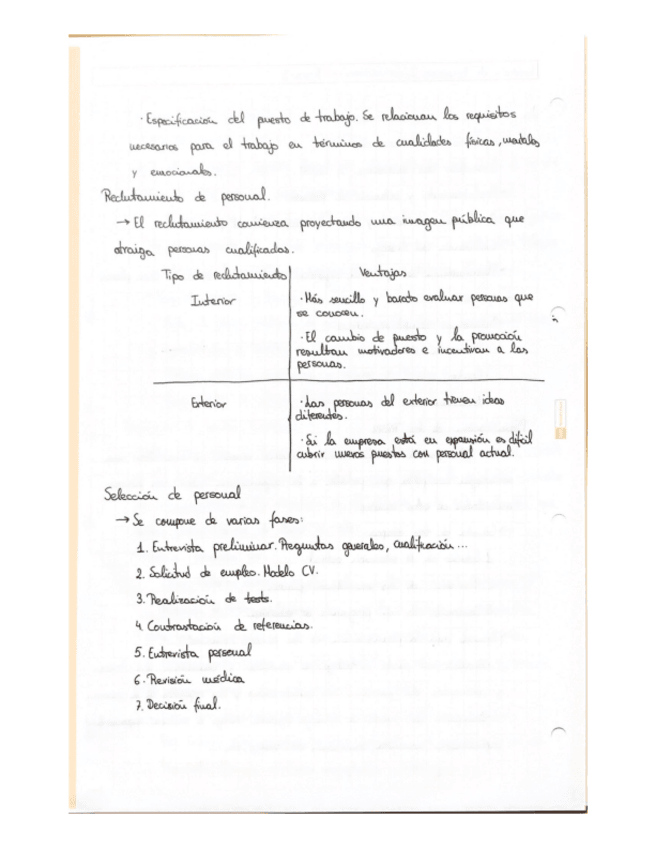 · Especificación del puesto de trabajo. Se relacionan los requisitos
necesarios para el trabajo en términos de cualidades físicas, mentales
y emocionales.
Reclutamiento de personal.
→ El reclutamiento comienza proyectando una imagen pública que
atraiga personas cualificadas.
Tipo de reclutamiento Ventajas
Interior · Más sencillo y barato evaluar personas que
se conocen.
· El cambio de puesto y la promoción
resultan motivadores e incentivan a las
personas.
Exterior · Las personas del exterior tienen ideas
diferentes.
· Si la empresa está en expansión es difícil
cubrir nuevos puestos con personal actual.
Selección de personal
→ Se compone de varias fases:
1. Entrevista preliminar. Preguntas generales, cualificación...
2. Solicitud de empleo. Modelo CV.
3. Realización de tests.
4. Contrastación de referencias.
5. Entrevista personal
6. Revisión médica
7. Decisión final.